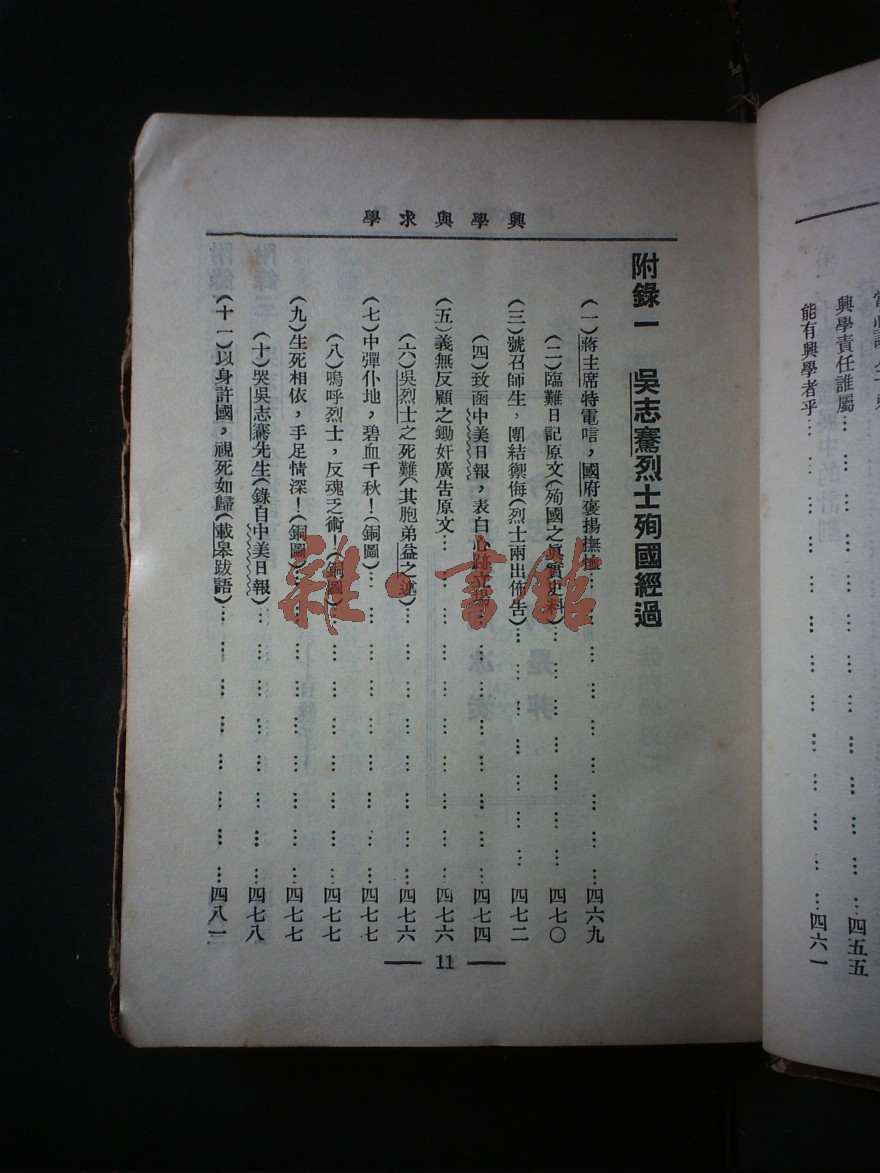 興學責任誰屬… … … … … … … … … …四五五
能有興學者乎… … … … … … … … … …四六一
興學與求學
附錄一　吳志騫烈士殉國經過
(一)蔣主席特電唁，國府褒揚撫恤… … … … … … … …四六九
(二)臨難日記原文(殉國之眞實史料)… … … … … … …四七〇
(三)號召師生，團結禦侮(烈士兩出佈告)… … … … … …四七二
(四)致函中美日報，表白心跡立場… … … … … … … …四七四
(五)義無反顧之鋤奸廣告原文… … … … … … … … …四七六
(六)吳烈士之死難(其胞弟益之述)… … … … … … … …四七六
(七)中彈仆地，碧血千秋！(銅圖)… … … … … … … …四七七
(八)嗚呼烈士，反魂乏術！(銅圖)… … … … … … … …四七七
(九)生死相依，手足情深！(銅圖)… … … … … … … …四七七
(十)哭吳志騫先生(錄自中美日報)… … … … … … … …四七八
(十一)以身許國，視死如歸(載皋跋語)… … … … … … …四八一
— 11 —
雜·書館